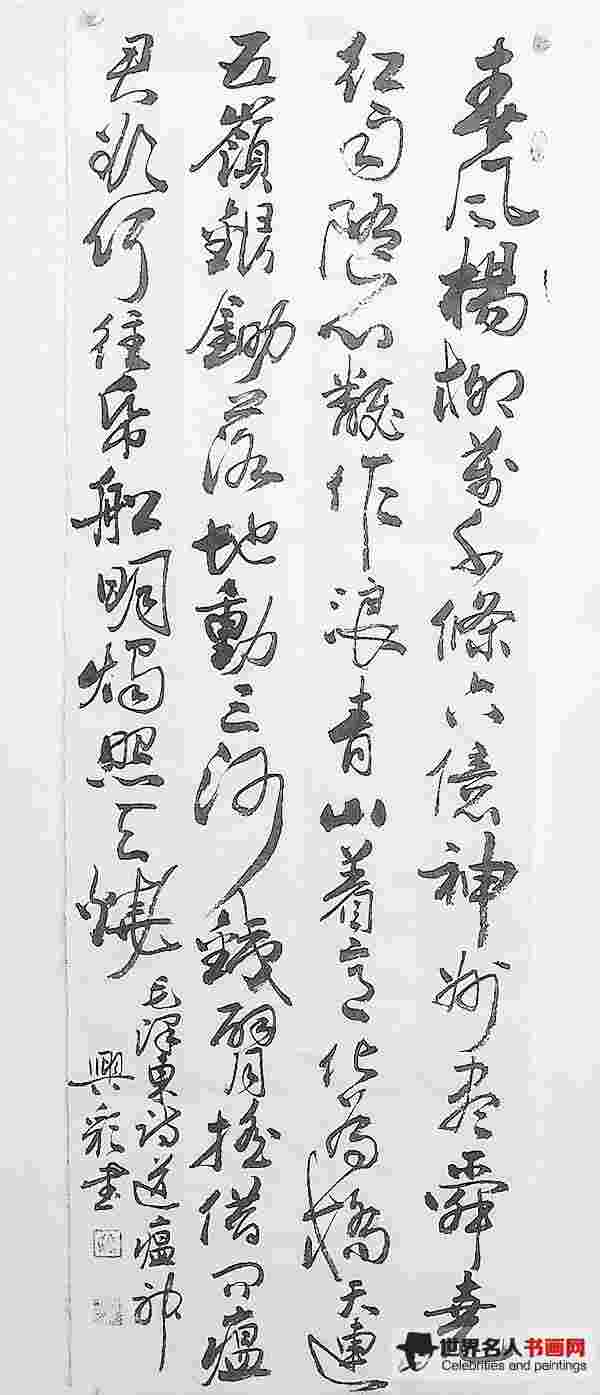 春风楊柳萬千條六億神州尽舜尭
红雨随心翻作浪青山着意化为橋天連
五嶺銀鋤落地動三河鐵臂摇借问瘟
君欲何往帋船明燭照天燒
毛澤東诗送瘟神
興彩書
世界名人书画网
Celebrities and paintings